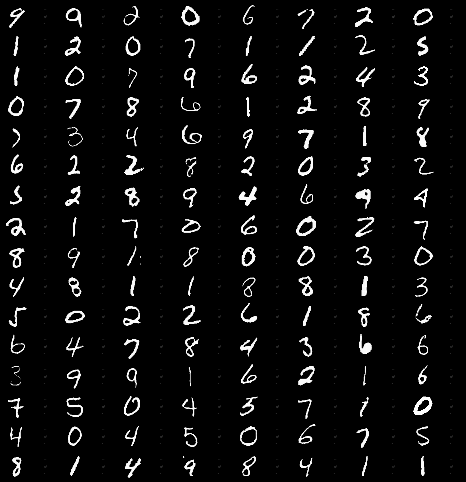 9 9 2 0 6 7 2 0
1 2 0 7 1 1 2 5
1 0 7 9 6 2 4 3
0 7 8 6 1 2 8 9
7 3 4 6 9 7 1 8
6 2 2 8 2 0 3 2
5 2 8 9 4 6 9 4
2 1 7 0 6 0 2 7
8 9 1 8 0 0 3 0
4 8 1 1 8 8 1 3
5 0 2 2 6 1 8 6
6 4 7 8 4 3 6 6
3 9 9 1 6 2 1 6
7 5 0 4 5 7 1 0
4 0 4 5 0 6 7 5
8 1 4 9 8 4 1 1